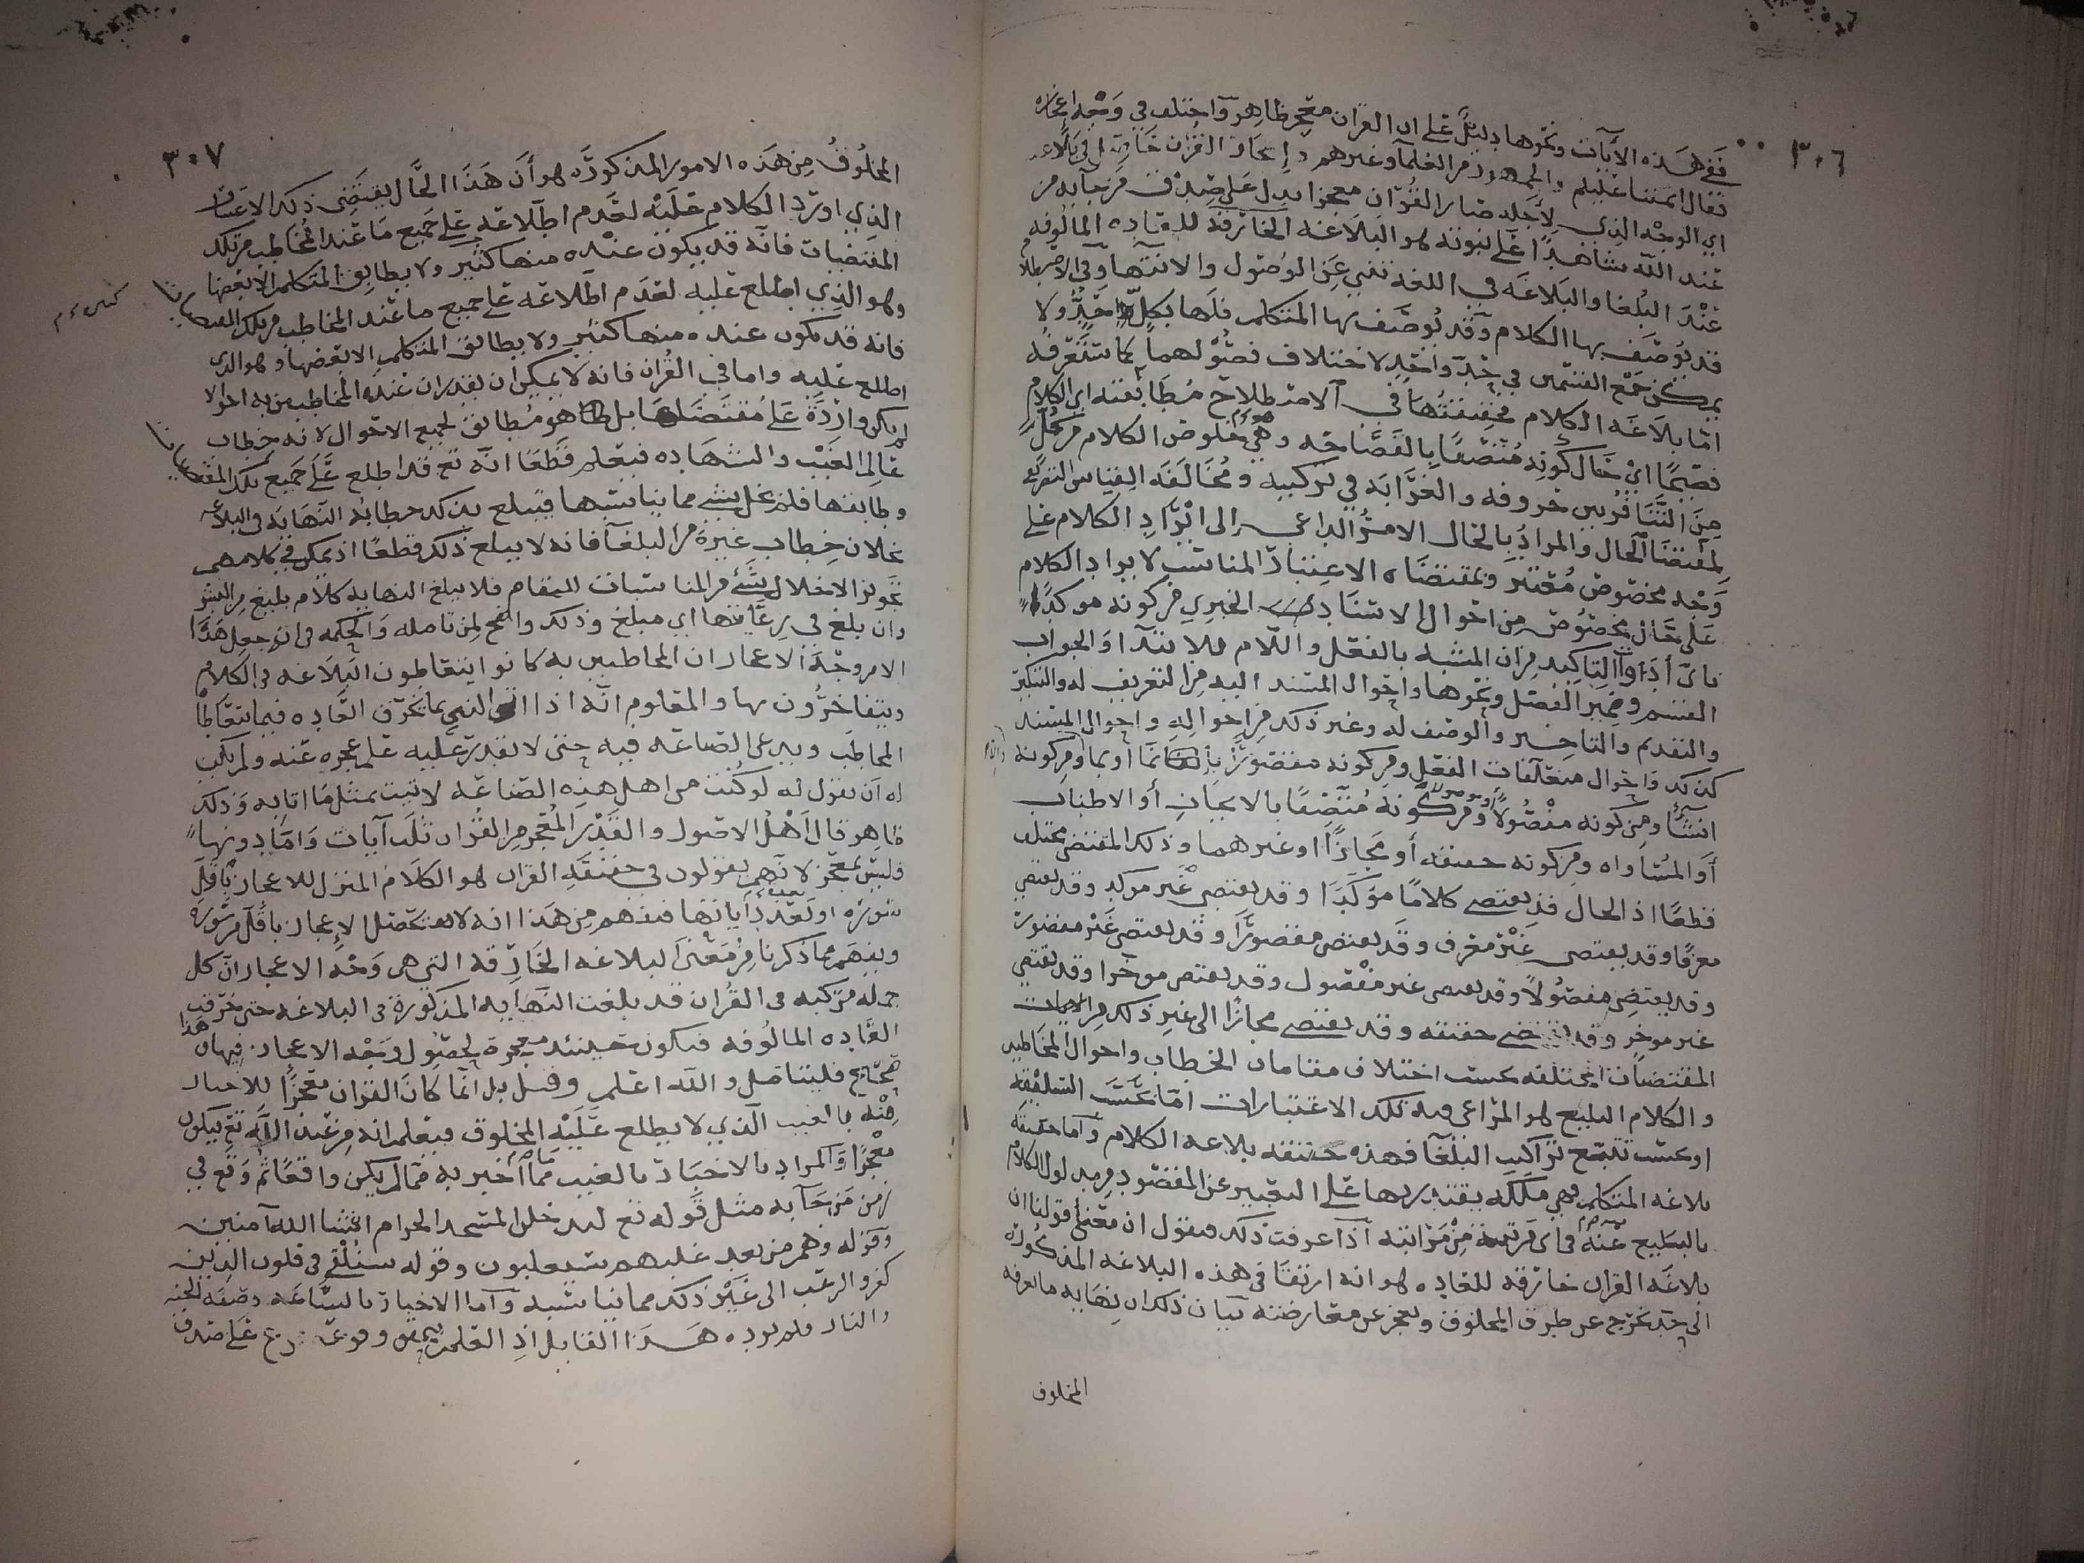 ٣٠٦
ففي هذه الآيات ونحوها دليل على ان القران معجز ظاهر واختلف في وجه اعجازه
فقال ائمتنا عليلم والجمهور من العلمآ وغيرهم وإعجاز القران خارقه في بلاغه
اي الوجه الذي لاجله صار القرآن معجزا يدل على صدق من جآ به من
عند الله شاهدًا على نبوته هو البلاغه الخارقة للعاده المالوفه
عند البلغا والبلاغه في اللغه تنبي عن الوصول والانتهآ وفي الاصطلاح
قد يوصف بها الكلام وقد يوصف بها المتكلم فلها بكلٍّ حدٌّ ولا
يمكن جمع القسمين في حدّ واحد لاختلاف فصولهما كما ستعرفه
امّا بلاغه الكلام فحقيقتها في الاصطلاح مُطابقته اي الكلام
فصيحًا اي حال كونه مُتّصفًا بالفصاحه وهي خلوص الكلام من كلٍّ
مِنَ التنافر بين حروفه والغرابه في تركيبه ومُخالفه القياس
لمقتضا الحال والمرادُ بالحال الامرُ الداعي الى ايرادِ الكلام على
وجه مخصوص مُعتبر وبمقتضاه الاعتبار المناسب لايراد الكلام
على حال مخصوص من احوال الاسناد الخبري من كونه موكدًا
باى أدوات التاكيد من ان المشبه بالفعل واللام للابتدا والجواب
القسم وضمير الفصل ونحوها واحوال المسند اليه من التعريف له والتنكير
والتقديم والتاخير والوصف له وغير ذلك من احواله واحوال المسند
كذلك واحوال متعلقات الفعل ومن كونه مقصورًا بانما أو بما ومن كونه
انشآً ومن كونه مفصُولاً أو موصولا ومن كونه مُتّصفًا بالايجاز أو الاطناب
أو المُساواه ومن كونه حقيقه أو مجازًا او غيرهما وذلك المقتضى مختلف
قطعًا اذ الحال قد يقتضي كلامًا موكّدًا وقد يقتضي غير موكد وقد يقتضي
معرفًا وقد يقتضي غير معرف وقد يقتضي مقصورًا وقد يقتضي غير مقصور
وقد يقتضي مفصُولاً وقد يقتضي غير مفصول وقد يقتضي موخرا وقد يقتضي
غير موخر وقد يقتضي حقيقه وقد يقتضي مجازًا الى غير ذلك من
المقتضيات المختلفه بحسب اختلاف مقامات الخطاب واحوال المخاطبين
والكلام البليغ هو المراعى فيه تلك الاعتبارات امّا بحسب السليقه
او بحسب تتبّع تراكيب البلغآ فهذه حقيقه بلاغه الكلام وأما حقيقه
بلاغه المتكلم فهي ملكه يقتدر بها على التعبير عن المقصود من مدلول الكلام
بالبليغ عنه في اى مرتبه من مراتبه اذا عرفت ذلك فنقول ان معنى قولنا ان
بلاغه القران خارقه للعاده هو انه ارتقا في هذه البلاغه المذكوره
الى حد خرج عن طوق المخلوق وعجز عن معارضته بيان ذلك ان نهايه ما يعرفه
المخلوق
٣٠٧
المخلوقُ مِن هذه الامور المذكورة هو أن هذا الحال يقتضي ذلك الاعتبار
الذي اورد الكلام عليه لعدم اطلاعه على جميع ما عند المخاطب من تلك
المقتضيات فانه قد يكون عنده منها كثير ولا يطابق المتكلم الا بعضها
وهو الذي اطلع عليه لعدم اطلاعه على جميع ما عند المخاطب من تلك
فانه قد يكون عنده منها كثير ولا يطابق المتكلم الا بعضها وهو الذي
اطلع عليه واما في القران فانه لا يمكن ان يقدر ان عند المخاطبين به احوالا
لم يكن واردة على مُقتضاها بل هو مُطابق لجميع الاحوال لانه خطاب
عالم الغيب والشهاده فيعلم قطعًا انه تع قد اطلع على جميع تلك
وطابقها فلم يخل بشي مما يناسبها فيبلغ بذلك خطابُه النهايه في البلاغه
بخلاف خطاب غيره من البلغآ فانه لا يبلغ ذلك قطعًا اذ يمكن في كلامهم
تجويز الاخلال بشئ من المناسبات للمقام فلا يبلغ النهايه كلام بليغ من البشر
وان بلغ في رعايتها اي مبلغ وذلك واضح لمن تامله والحكمه في ان جعل هذا
الامر وجه الاعجاز ان المخاطبين به كانوا يتعاطون البلاغه في الكلام
ويتفاخرُون بها والمعلوم انّه اذا اتى النبي بما يخرق العاده فيما يتعاطاه
المخاطب ويدعى الصناعه فيه حتى لا يقدر عليه علم عجزه عنه ولم يكن
له أن يقول له لو كنت من اهل هذه الصناعه لاتيت بمثل ما اتا به وذلك
ظاهر قال أهلُ الاصول والقدْر المُعجز من القُران ثلث آيات وامّا دونها
فليس بمعجز لانهم يقولون في حقيقهِ القران هو الكلام المنزل للاعجاز باقل
سوره او بعدد آياتها ففهم من هذا انه لا يحصل الإعجاز باقل من سوره
ويفهم مما ذكرنا من معنى البلاغه الخارقه التي هي وجه الاعجاز ان كل
جمله مركبه في القُران قد بلغت النهايه المذكورة في البلاغه حتى خرقت
العاده المالُوفه فتكون حينئذ معجزة لحصول وجه الاعجاز فيها وهذا
فليتامل والله اعلم وقيل بل انما كان القران معجزًا للاخبار
فيه بالغيب الذي لا يطلع عليه المخلوق فيعلم انه من عند الله تع فيكون
معجزًا والمراد بالاخبار بالغيب ما أخبر به مما لم يكن واقعًا ثم وقع في
زمن من جآ به مثل قوله تع لتدخلن المسجد الحرام انشا الله آمنين
وقوله وهم من بعد غلبهم سيغلبون وقوله سنُلقي في قلوب الذين
كفروا الرعب الى غير ذلك مما يناسبه وأما الاخبار بالساعه وصفه الجنه
والنار فلم يرده هذا القايل اذِ العلم وقوعه على صدق